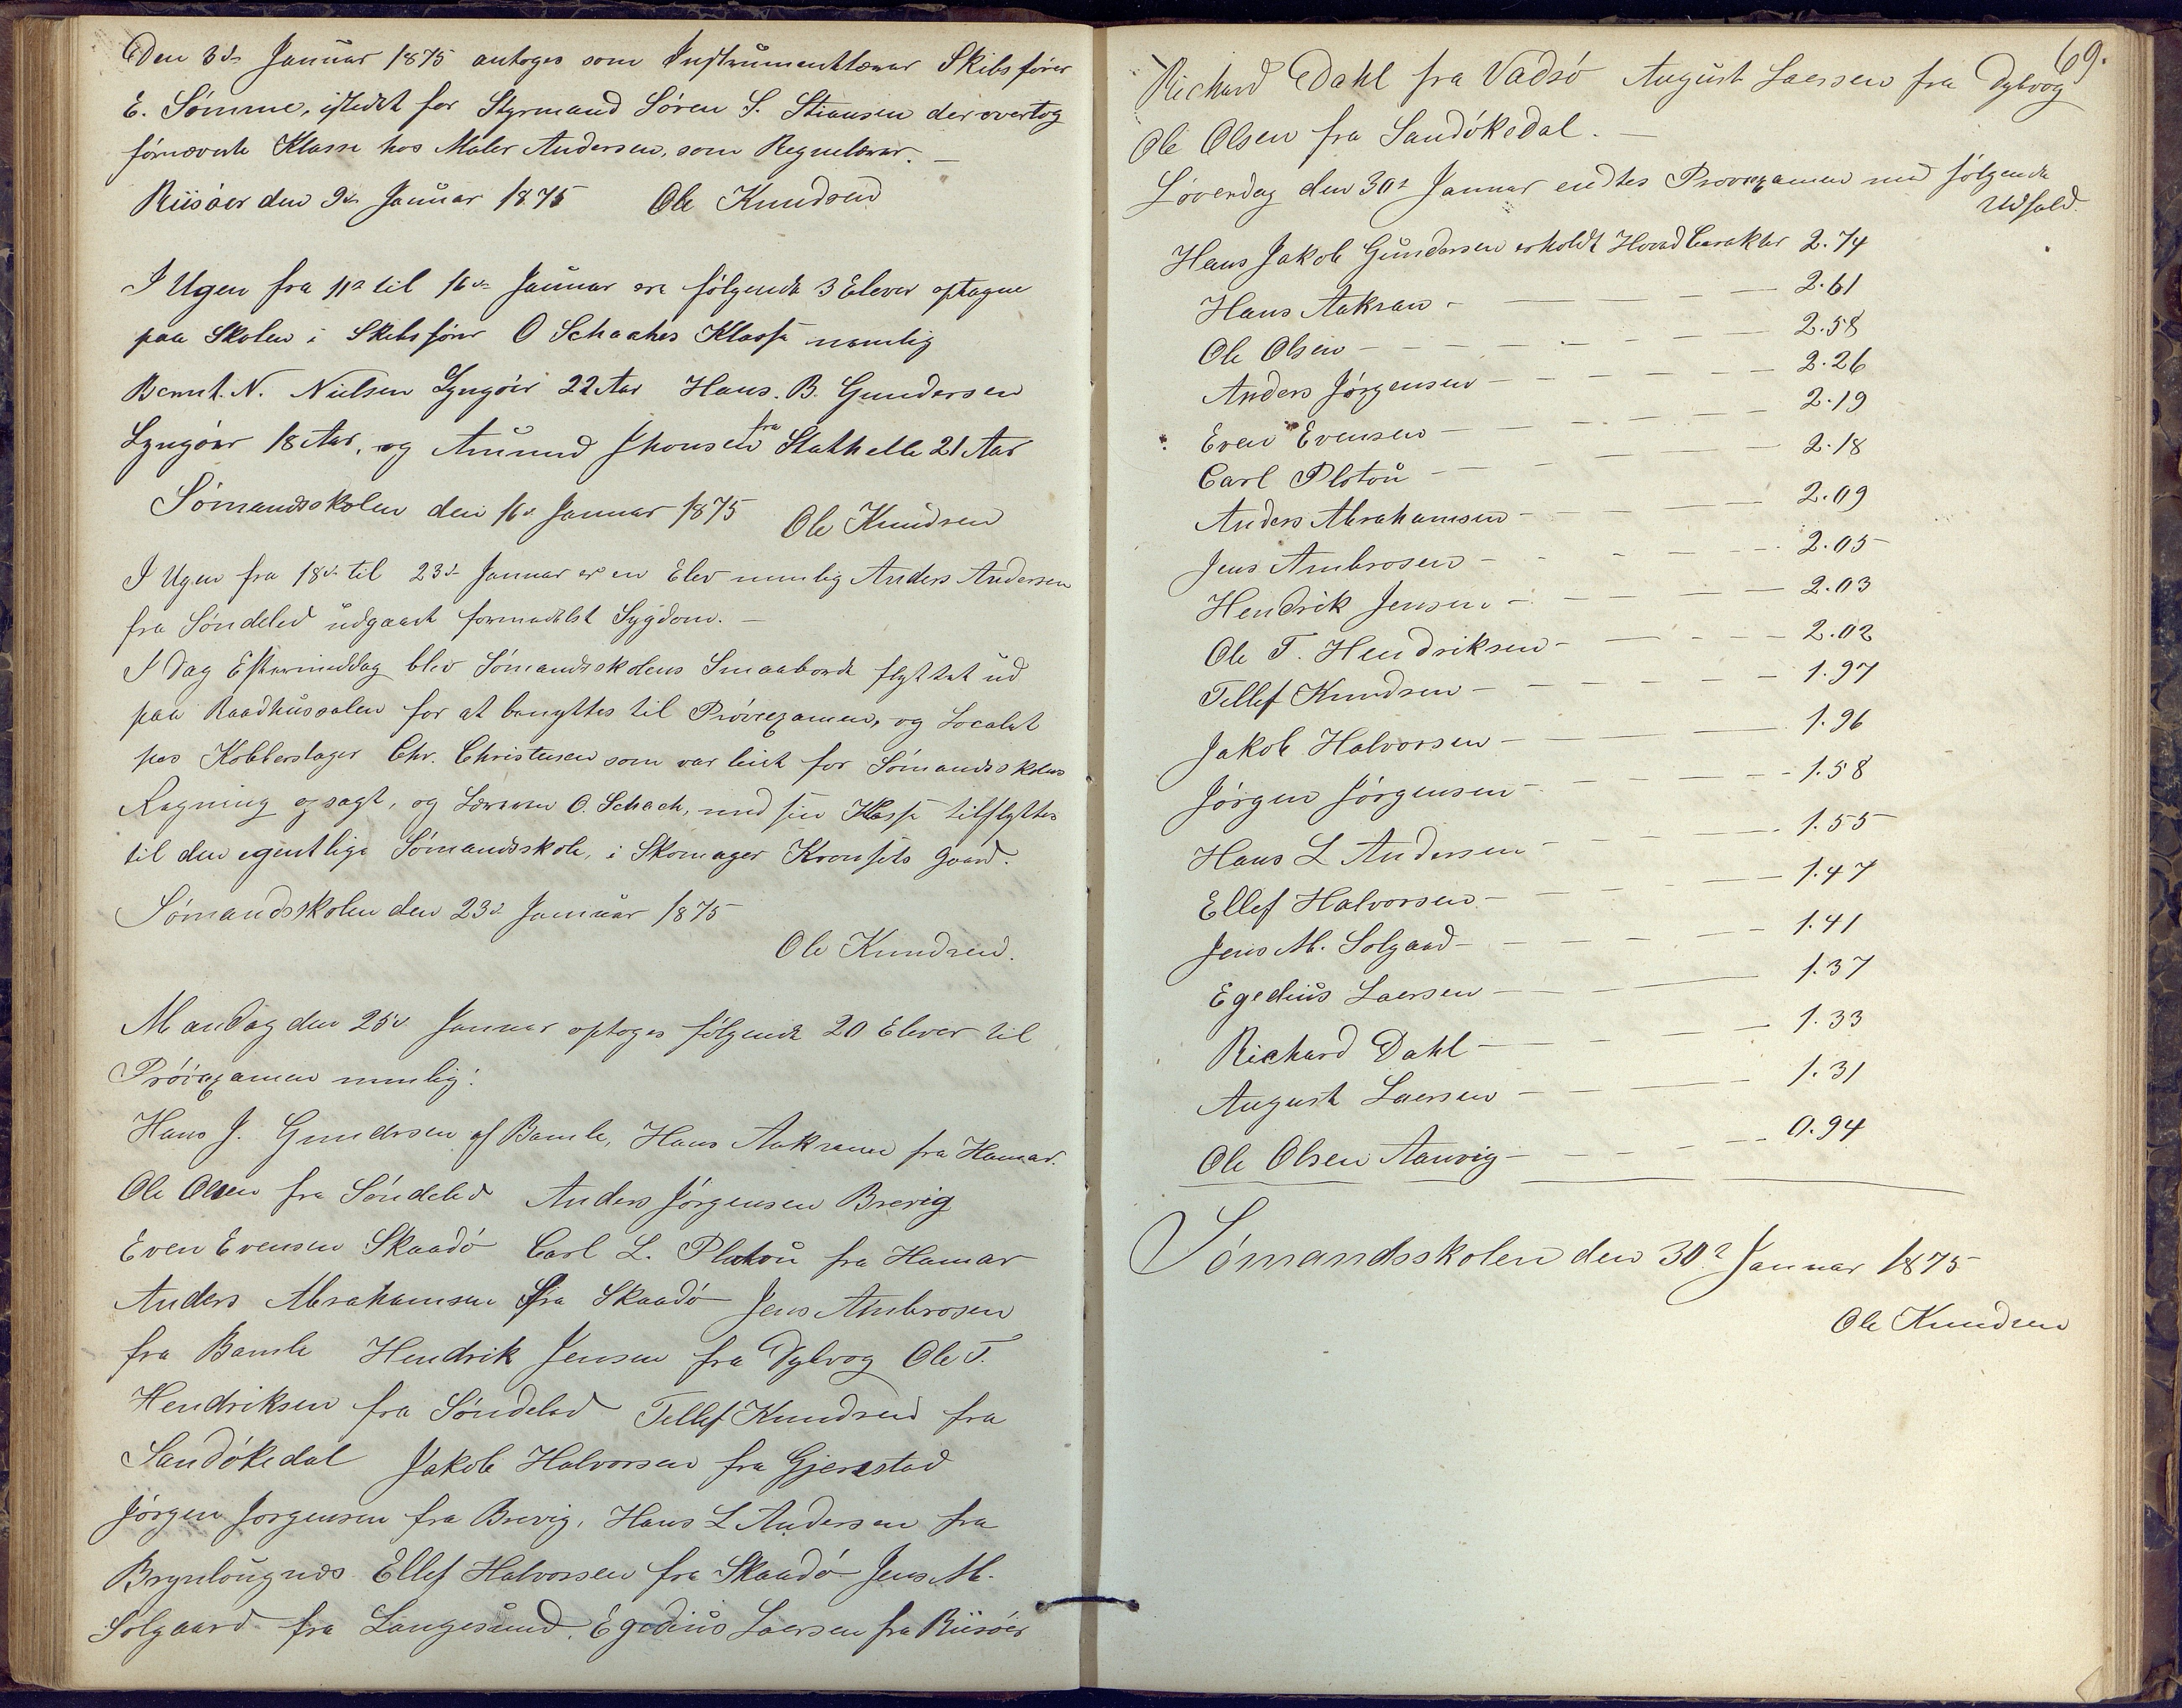 Den 3de Januar 1875 antoges som Instrumentlærer Skibsfører
E. Sømme, istedet for Styrmand Søren S. Stiansen der overtog
førnævnte Klasse hos Maler Andersen, som Regnelærer. —
Riisøer den 9de Januar 1875 Ole Knudsen
I Ugen fra 11te til 16de Januar ere følgende 3 Elever optagne
paa Skolen i Skibsfører O Schaches Klasse nemlig
Bernt. N. Nielsen Lyngøer 22 Aar Hans. B. Gundersen
Lyngøer 18 Aar, og Amund Jhonsen fra Stathelle 21 Aar
Sømandsskolen den 16de Januar 1875
Ole Knudsen
I Ugen fra 18de til 23de Januar er en Elev nemlig Anders Andersen
fra Søndeled udgaaet formedelst Sygdom. —
I Dag Eftermiddag blev Sømandsskolens Smaaborde flyttet ud
paa Raadhussalen for at benyttes til Prøvexamen, og Localet
hos Kobberslager Chr. Christensen som var leiet for Sømandsskolens
Regning opsagt, og Læreren O. Schach, med sin Klasse tilflyttes
til den egentlige Sømandsskole, i Skomager Gaard.
Sømandsskolen den 23de Januar 1875
Ole Knudsen.
Mandag den 25de Januar optoges følgende 20 Elever til
Prøvexamen nemlig:
Hans J. Gundersen af Bamle, Hans Aakran fra Hamar.
Ole Olsen fra Søndeled Anders Jørgensen Brevig
Even Evensen Skaadø Carl L. Platou fra Hamar
Anders Abrahamsen fra Skaadø Jens Ambrosen
fra Bamle Hendrik Jensen fra Dybvog Ole T.
Hendriksen fra Søndeled Tellef Knudsen fra
Sandøkedal Jakob Halvorsen fra Gjerestad
Jørgen Jorgensen fra Brevig, Hans L Andersen fra
Ellef Halvorsen fra Skaadø Jens M.
Solgaard fra Langesund, Egedius Laersen fra Riisøer
69.
Richard Dahl fra Vadsø August Laersen fra Dybvog
Ole Olsen fra Sandøkedal. —
Løverdag den 30te Januar endtes Prøvexamen med følgende
Udfald.
Hans Jakob Gundersen erholdt HovedCarakter 2.74
Hans Aakran — 2.61
Ole Olsen — 2.58
Anders Jørgensen — 2.26
Even Evensen — 2.19
Carl Plotou — 2.18
Anders Abrahamsen — 2.09
Jens Ambrosen — 2.05
Hendrik Jensen — 2.03
Ole T. Hendriksen — 2.02
Tellef Knudsen — 1.97
Jakob Halvorsen — 1.96
Jørgen Jørgensen — 1.58
Hans L Andersen — 1.55
Ellef Halvorsen — 1.47
Jens M. Solgaad — 1.41
Egedius Laersen — 1.37
Richard Dahl — 1.33
August Laersen — 1.31
Ole Olsen Aarvig — 0.94
Sømandsskolen den 30te Januar 1875
Ole Knudsen